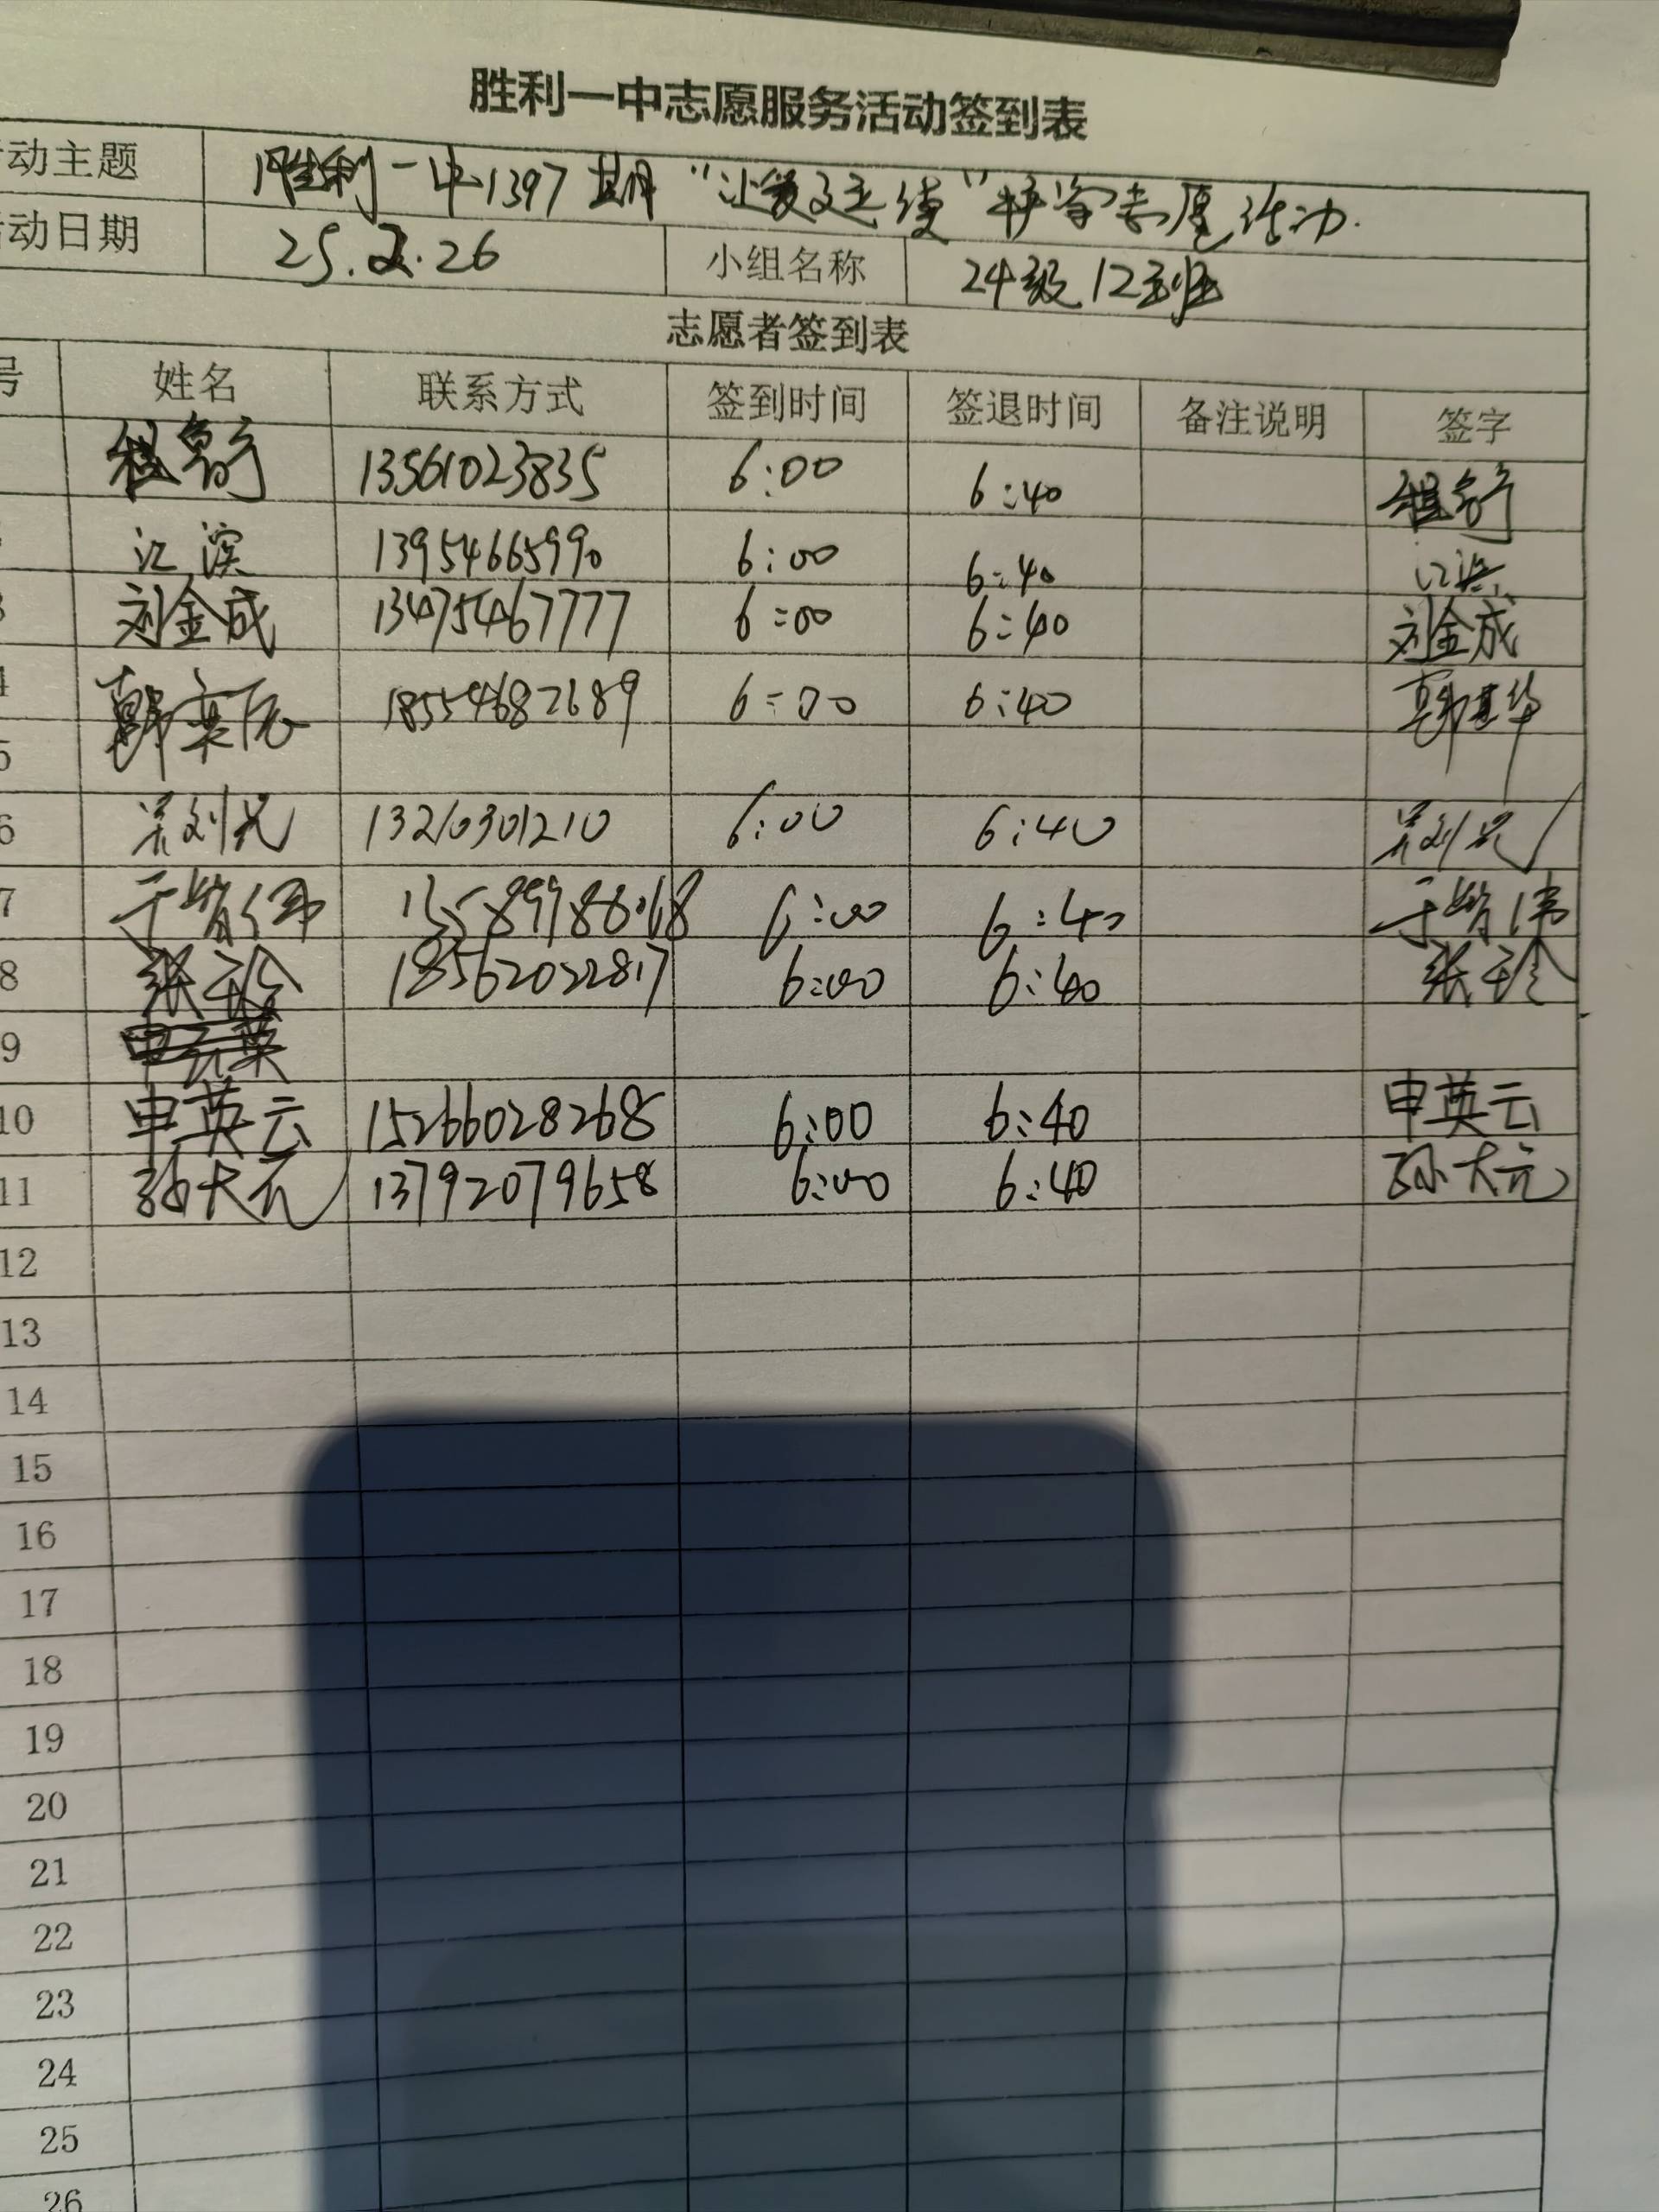 胜利一中志愿服务活动签到表
动主题 胜利一中1397期“让爱延续”护学志愿活动.
动日期 25.2.26 小组名称 24级12班
志愿者签到表
号 姓名 联系方式 签到时间 签退时间 备注说明 签字
13561023835 6:00 6:40
江滨 13954665990 6:00 6:40 江滨
3 刘金成 13475467777 6:00 6:40 刘金成
4 韩奕辰 18554682689 6:00 6:40
5
6 刘 13210301210 6:00 6:40 刘
7 于 伟 6:00 6:40 于 伟
8 张玲 18562022817 6:00 6:40 张玲
9
10 申英云 15266028268 6:00 6:40 申英云
11 孙大元 13792079658 6:00 6:40 孙大元
12
13
14
15
16
17
18
19
20
21
22
23
24
25
26